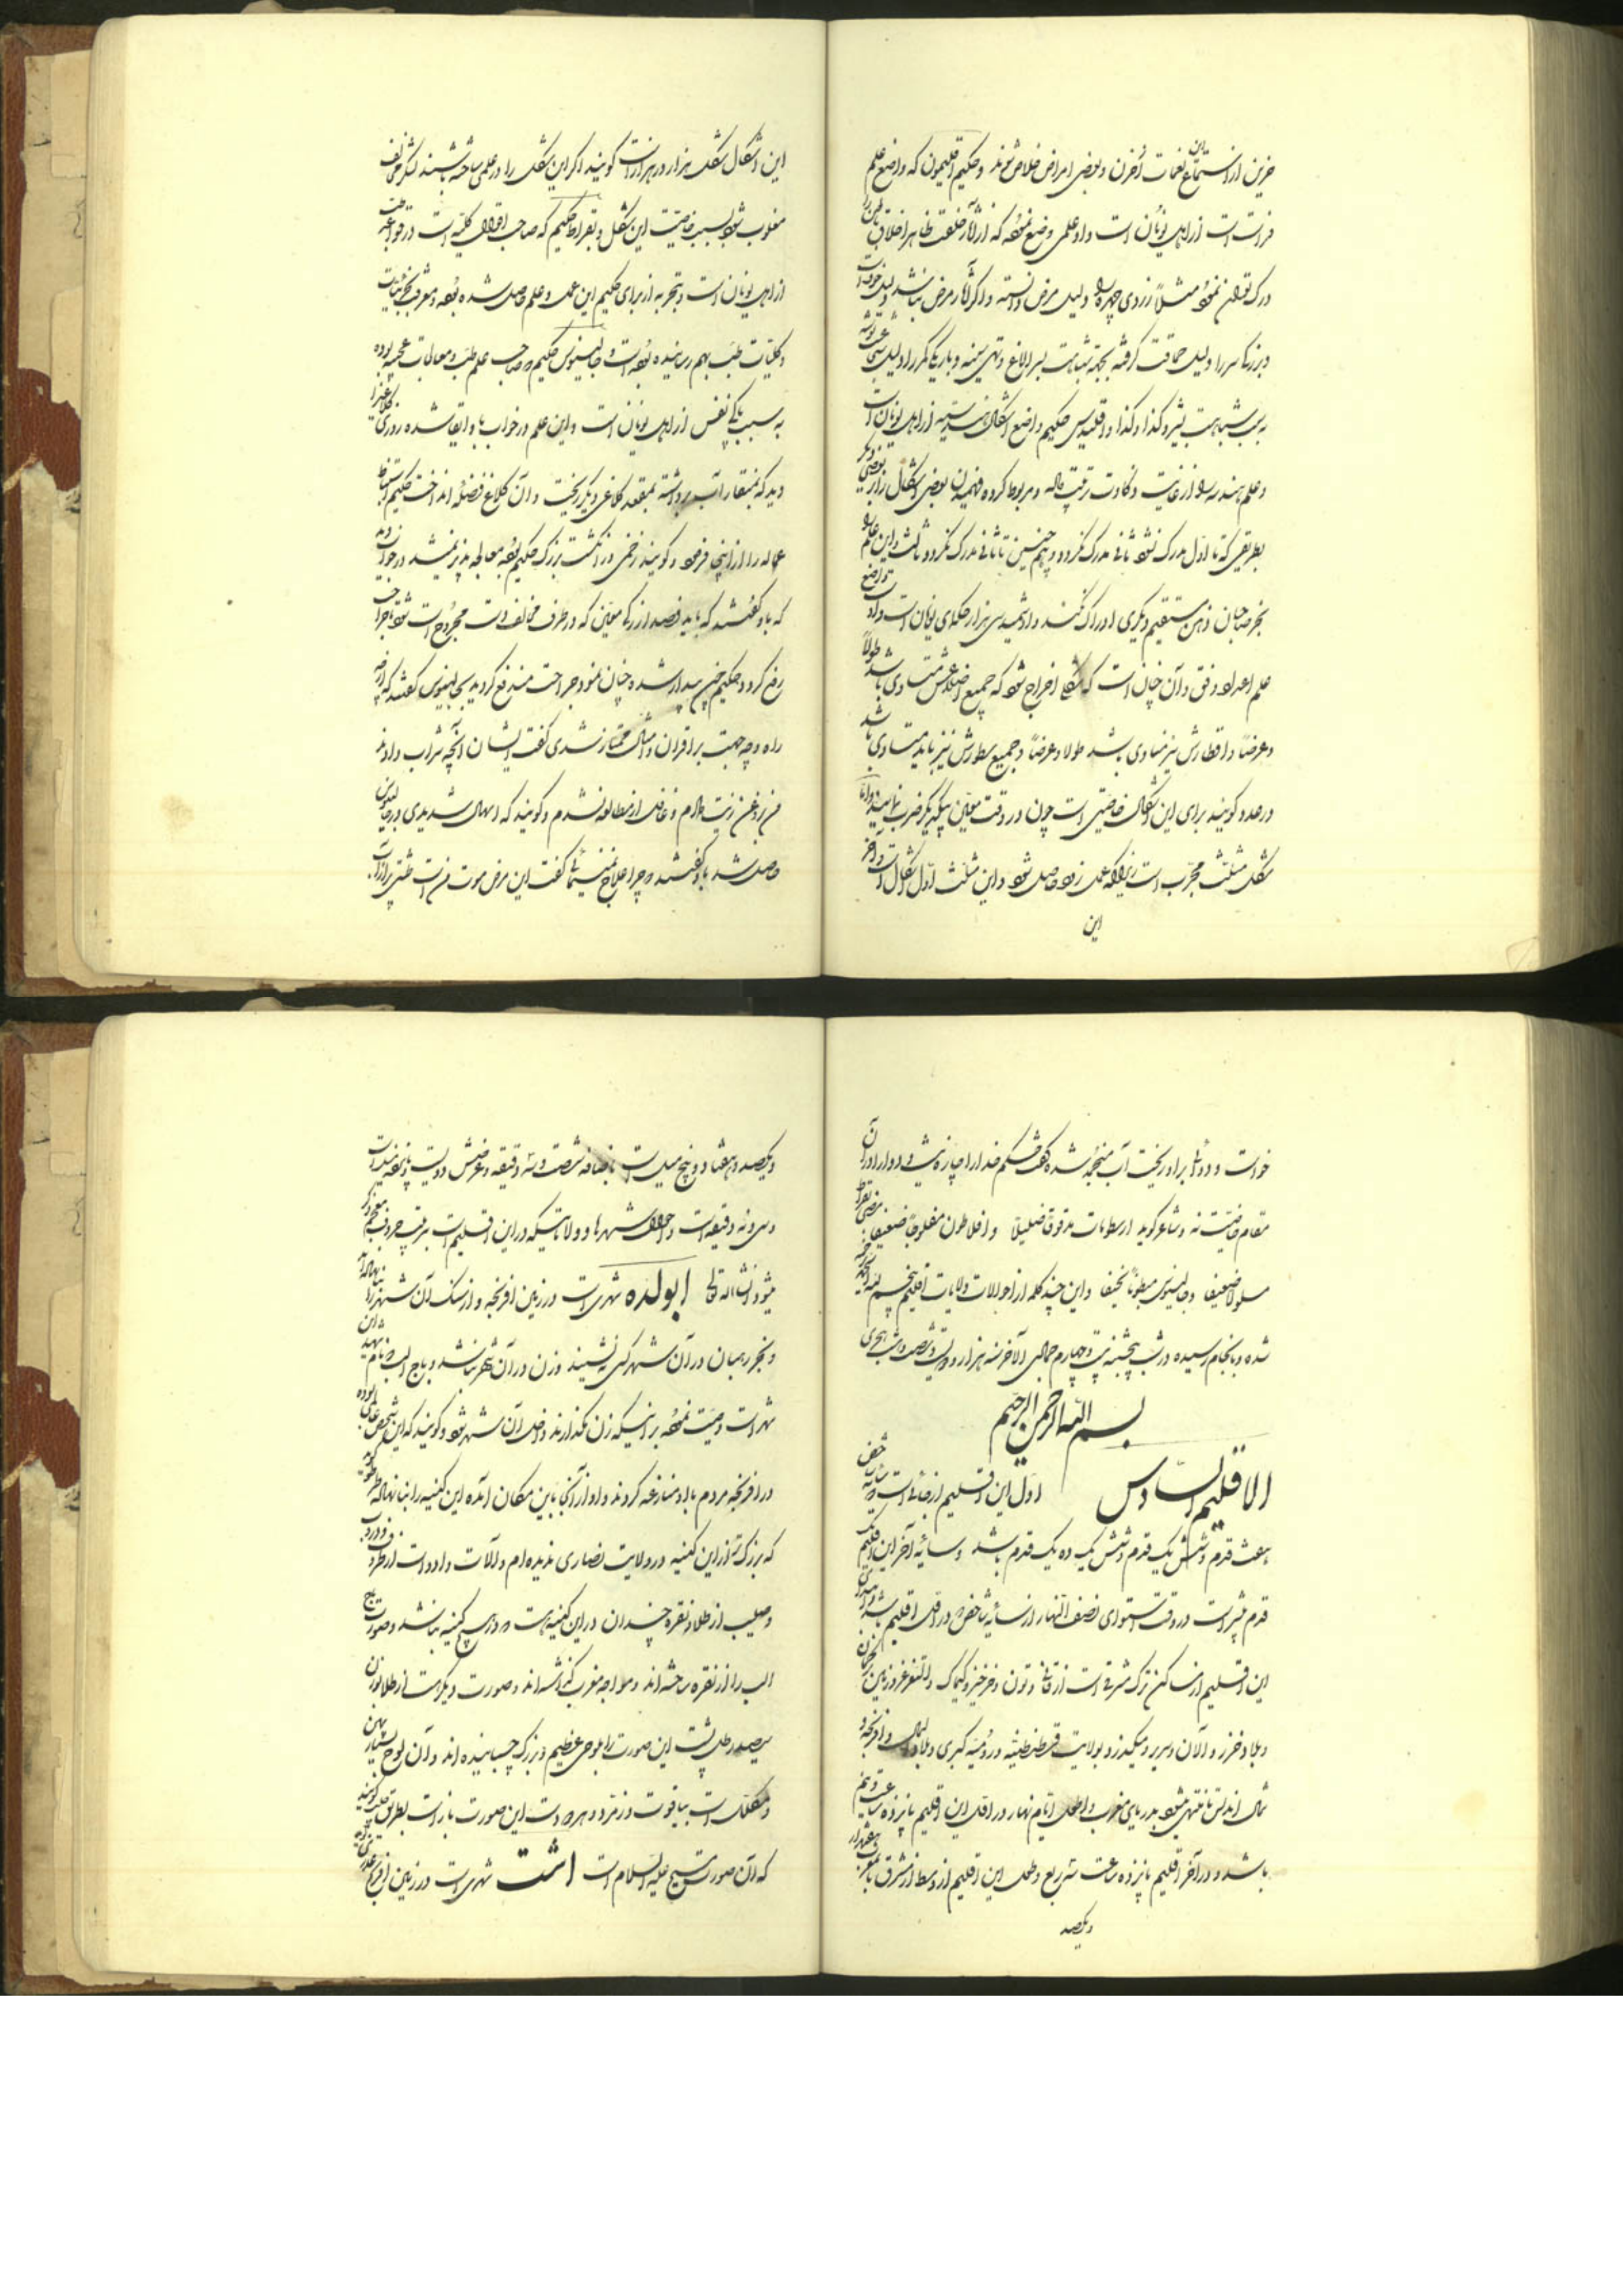 حزین از استماع این نغمات آخرین و بعضی امراض خلاص شوند و حکیم اقلیمون که واضع علم
فراست است از اهل یونان است و او علمی وضع نموده که از آثار خلقت ظاهر اخلاق باطن را
درک توان نمود مثلاً زردی چهره را دلیل مرض دانسته و اگر آثار مرض نباشد دلیل خوف است
و بزرگی سر را دلیل حماقت گرفته بجهة شباهت بسر الاغ و پهنی سینه و باریکی کمر را دلیل شجاعت گرفته
به سبب شباهت بشیر و کذا و کذا و اقلیدس حکیم واضع اشکال هندسیه از اهل یونان است
و علم هندسه را از غایت ذکاوت رقیمت و مربوط کرده فهمیدن بعضی اشکال را به بعضی دیگر
بطریقی که تا اول مدرک نشود ثانی مدرک نگردد و همچنین تا ثانی مدرک نگردد ثالث و این علم را
بجز صاحبان ذهن مستقیم دیگری ادراک نکند و ارشمیدس نیز از حکمای یونان است و او واضع
علم اعداد وفق و آن چنان است که شکلی اخراج شود که جمیع اضلاعش متساوی باشد طولاً
و عرضاً و اقطارش نیز متساوی باشد طولا و عرضاً و جمیع سطورش نیز باید متساوی باشد
در عدد و گویند برای این اشکال خاصیتی است چون در وقت معین بیکدیگر ضرب نمایند و اما
شکل مثلث مجرب است زیرا که عمل زود حاصل شود و این مثلث اول اشکال است و آخر
این
این اشکال شکل هزار در هزار است گویند اگر این شکل را در علمی ساخته باشند لشکر مخالف
مغلوب شود بسبب خاصیت این شکل و بقراط حکیم که صاحب اقوال کلیه است در قواعد طب
از اهل یونان است و تجربه از برای حکیم این عمل و علم حاصل شده بوده و معرفت بجزئیات
و کلیات طب بهم رسانیده بوده است و جالینوس حکیم صاحب علم طب و معالجات عجیبه بوده
به سبب پاکی نفس از اهل یونان است و این علم در خواب باو القا شده روزی کلاغی را
دید که بمنقار آب برداشته بمقعد کلاغی دیگر ریخت و آن کلاغ فضله انداخت حکیم استنباط
عماله را از اینجا فرمود و گویند زخمی در انگشت بزرگ حکیم بوده معالجه پذیر نمیشد در خواب دید
که باو گفتند که باید فصد از رگ معین که در طرف مخالف دست مجروح است شود تا جراحت
رفع گردد حکیم چون بیدار شده چنان نمود جراحت مندفع گردید بجالینوس گفتند که از چه
راه و چه جهت بر اقران و امثال ممتاز شدی گفت ایشان آنچه شراب دادند
من روغن زیت دادم و غافل از مطالعه نشدم و گویند که اسهال شدیدی در جالینوس
حاصل شد باو گفتند چرا علاج نمی نمائی گفت این مرض موت من است طشتی پر از آب
خواست و دوائی بر او ریخت آب منجمد شده گفت حکم خدا را چاره نیست و دوا را در آن
مقام خاصیت نه و شاعر گوید ارسطو مات مدقوقاً ضلیلاً و افلاطون مفلوجاً ضعیفا مضی بقراط
مسلولا ضعیفا و جالینوس مبطوناً نحیفا و این چند کلمه از احوالات ولایات اقلیم پنجم بود
شده و بانجام رسیده در شب پنجشنبه بیست و چهارم جمادی الآخر سنه هزار و دویست و شصت هجری
بسم الله الرحمن الرحیم
الاقلیم السادس اول این اقلیم از جائی است که سایه شخص
هفت قدم و شش یک قدم و شش یک ده یک قدم باشد و سایه آخر این اقلیم یک
قدم بیشتر است در وقت استوای نصف النهار از سایه شاخص در اول اقلیم باشد و ابتدای
این اقلیم از مساکن ترک شرقی است از قانی و تون و خرخیز و کیماک و التغزغز و زمین ترکمان
و بلاد خزر و آلان و سریر و میگذرد بولایت قسطنطنیه و رومیه کبری و بلاد المان و افرنجه و
شمال اندلس تا منتهی شود بدریای مغرب و اطول ایام نهار در اول این اقلیم پانزده ساعت و نیم
باشد و در آخر اقلیم پانزده ساعت و سه ربع و طول این اقلیم از وسط از مشرق تا مغرب هفت هزار
و یکصد
و یکصد و هفتاد و پنج میل است باضافه شصت و سه دقیقه و عرضش دویست و پانزده میل است
و سی و نه دقیقه است و احوال شهرها و ولایاتیکه در این اقلیم است بترتیب حروف معجم ذکر
میشود انشاءالله تعالی ابولده شهری است در زمین افرنجه و از سنگ آن شهر را بنا نهاده اند
و بجز رهبان در آن شهر کسی نه نشیند و زن در آن شهر نباشد و باج الب نام شهید آن
شهر است وصیت نموده بر اینکه زن نگذارند داخل آن شهر شود و گویند که این شخص
در افرنجه مردم با او منازعه کردند و او از آنجا باین مکان آمده این کنیسه را بنا نهاده
که بزرگ تر از این کنیسه در ولایت نصاری ندیده ام و آلات و ادوات از ظروف
و صلیب از طلا و نقره چندان در این کنیسه است که در هیچ کنیسه نباشد و صورت باج
الب را از نقره ساخته اند و مواجه مغرب گذاشته اند و صورت دیگر هست از طلا بوزن
سیصد رطل پشت این صورت را بلوحی عظیم و بزرگ چسبانیده اند و آن لوح بسیار پهن
و مکلل است بیاقوت و زمرد و هر دو دست این صورت باز است بطریق صلیب گویند
که آن صورت مسیح علیه السلام است اشت شهری است در زمین افرنج